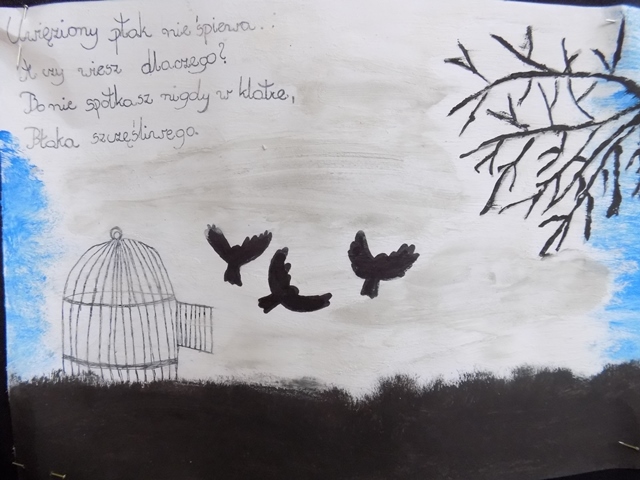 Uwięziony ptak nie śpiewa...
A czy wiesz dlaczego?
Bo nie spotkasz nigdy w klatce,
Ptaka szczęśliwego.